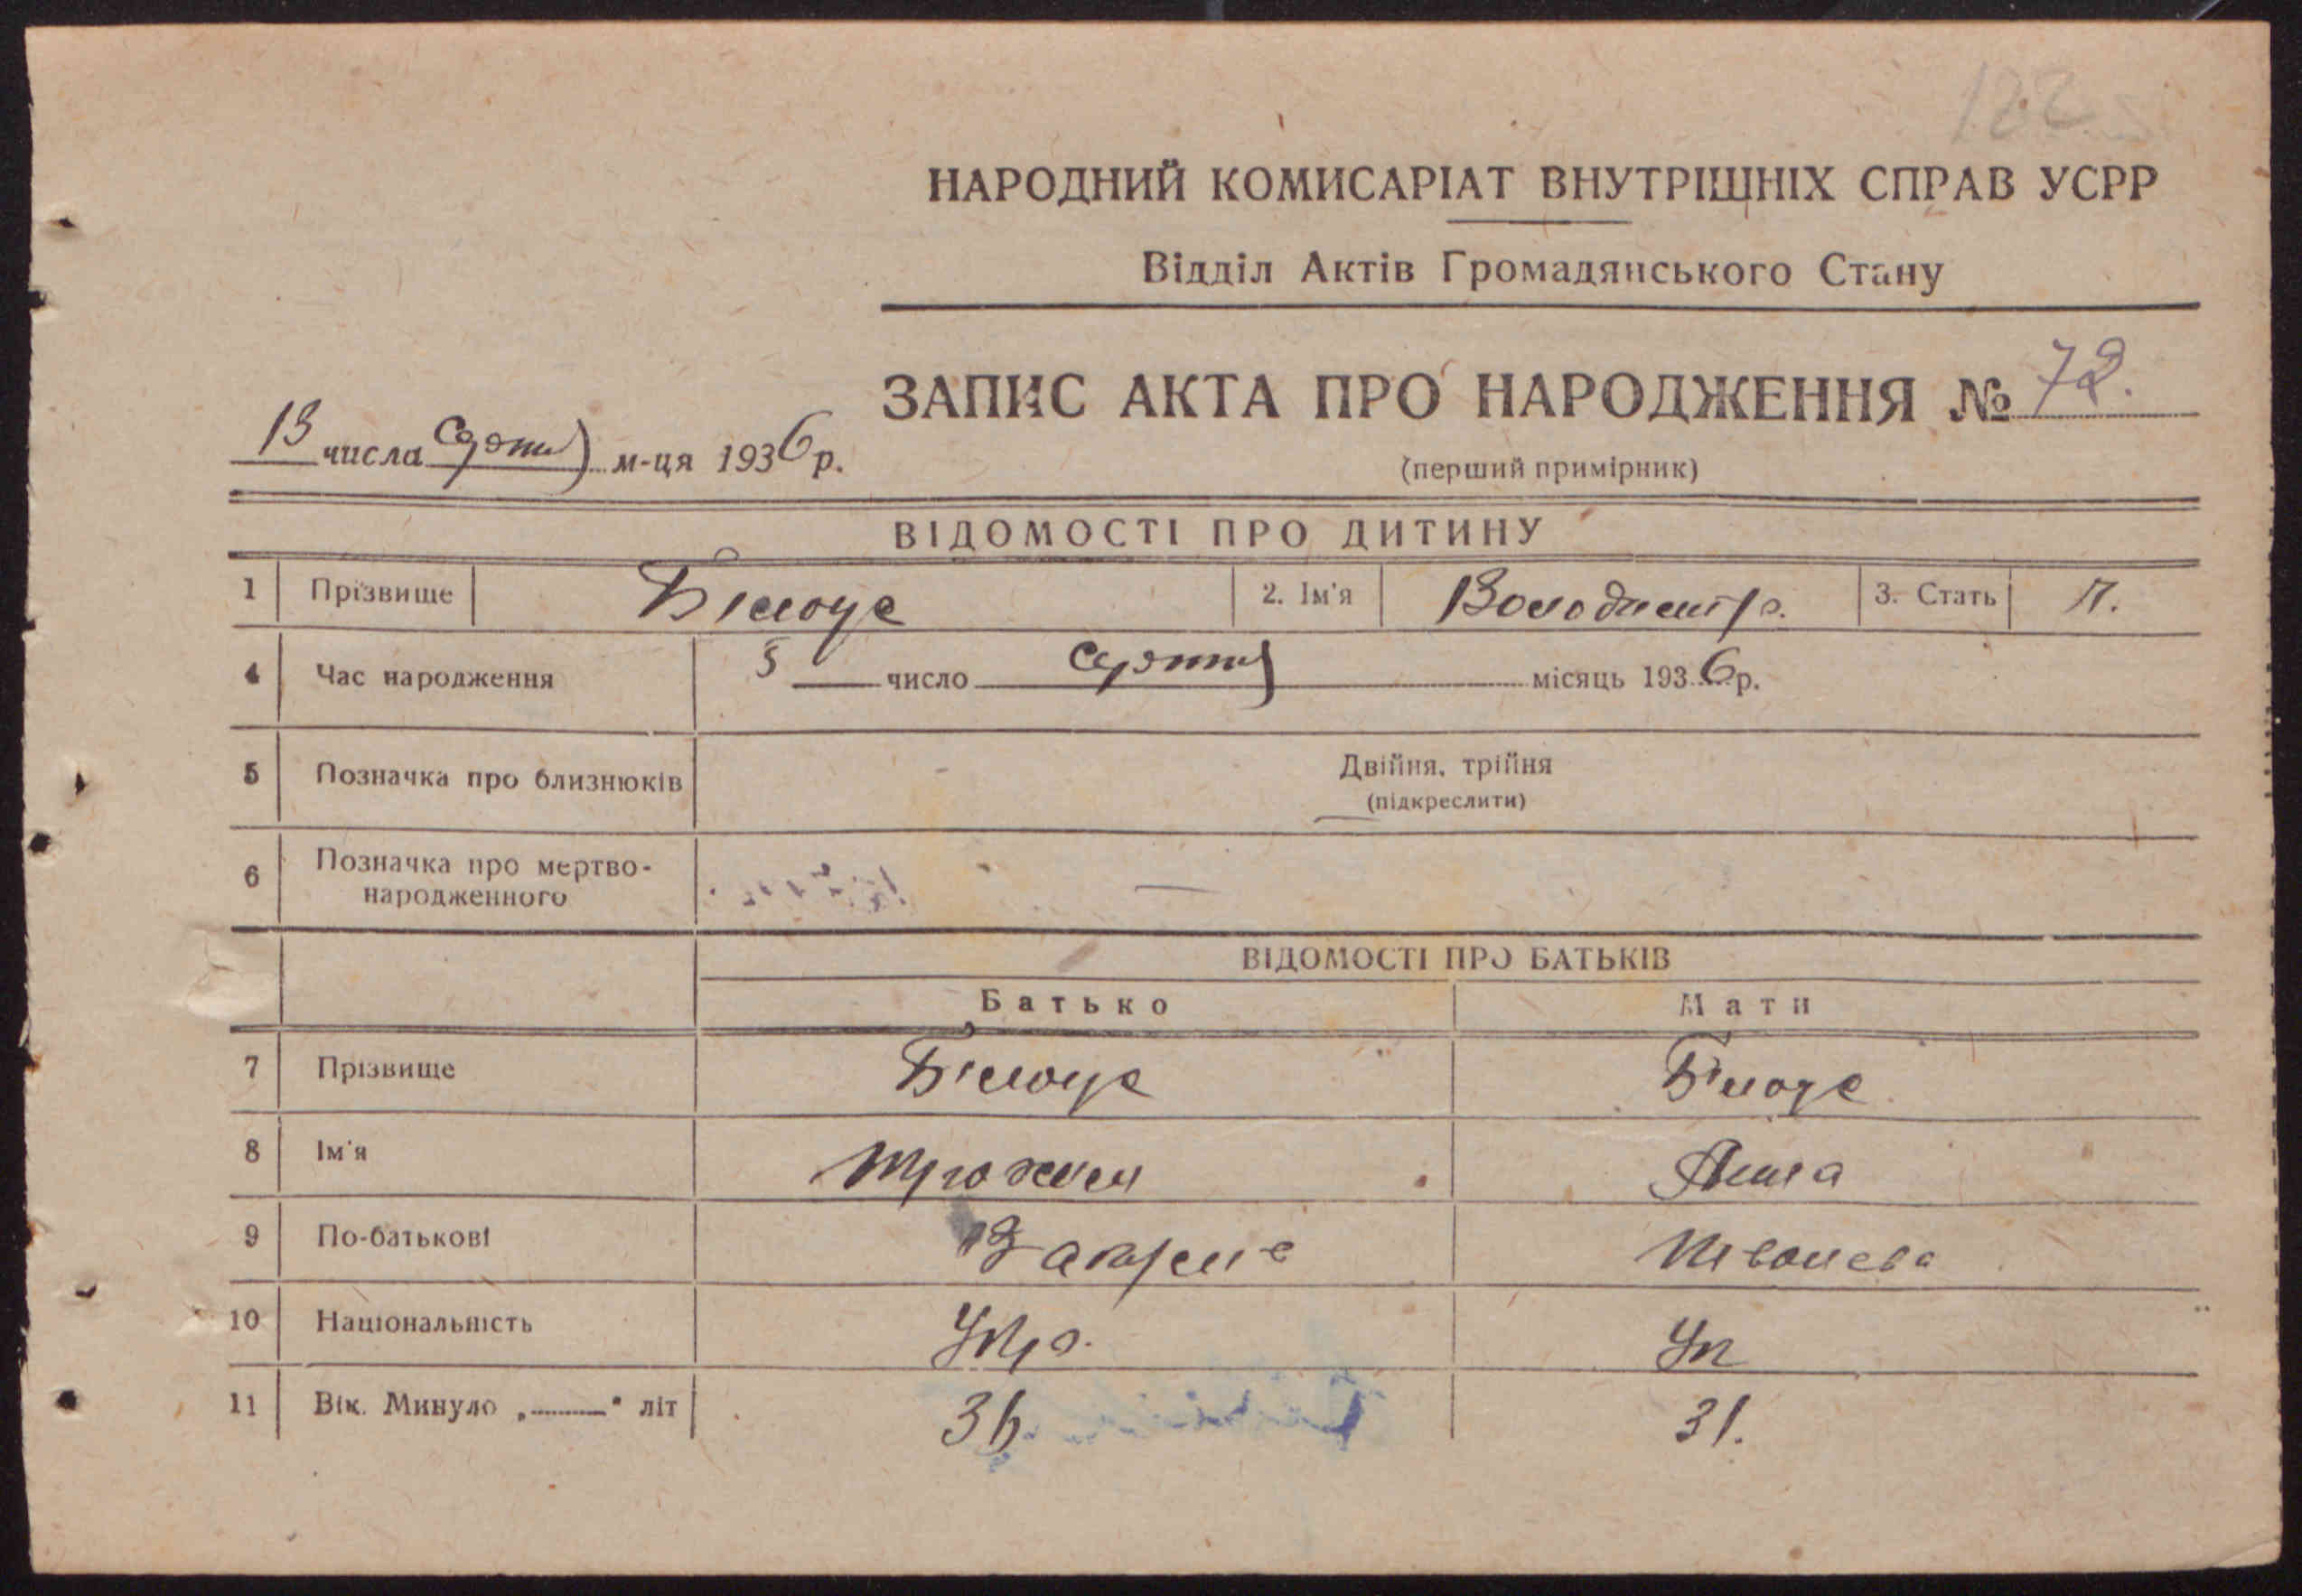 НАРОДНИЙ КОМИСАРІАТ ВНУТРІШНІХ СПРАВ УСРР
Відділ Актів Громадянського Стану
ЗАПИС АКТА ПРО НАРОДЖЕННЯ № 72.
13 числа серпня м-ця 1936 р.
(перший примірник)
ВІДОМОСТІ ПРО ДИТИНУ
1 Прізвище Білоус 2. Ім'я Володимир. 3. Стать Ч.
4 Час народження 5 число серпня місяць 1936 р.
5 Позначка про близнюків Двійня, трійня
(підкреслити)
6 Позначка про мертво-
народженного —
ВІДОМОСТІ ПРО БАТЬКІВ
Батько Мати
7 Прізвище Білоус Білоус
8 Ім'я Анна
9 По-батькові Ивановна
10 Національність Укр. Ук
11 Вік. Минуло „ “ літ 36 31.